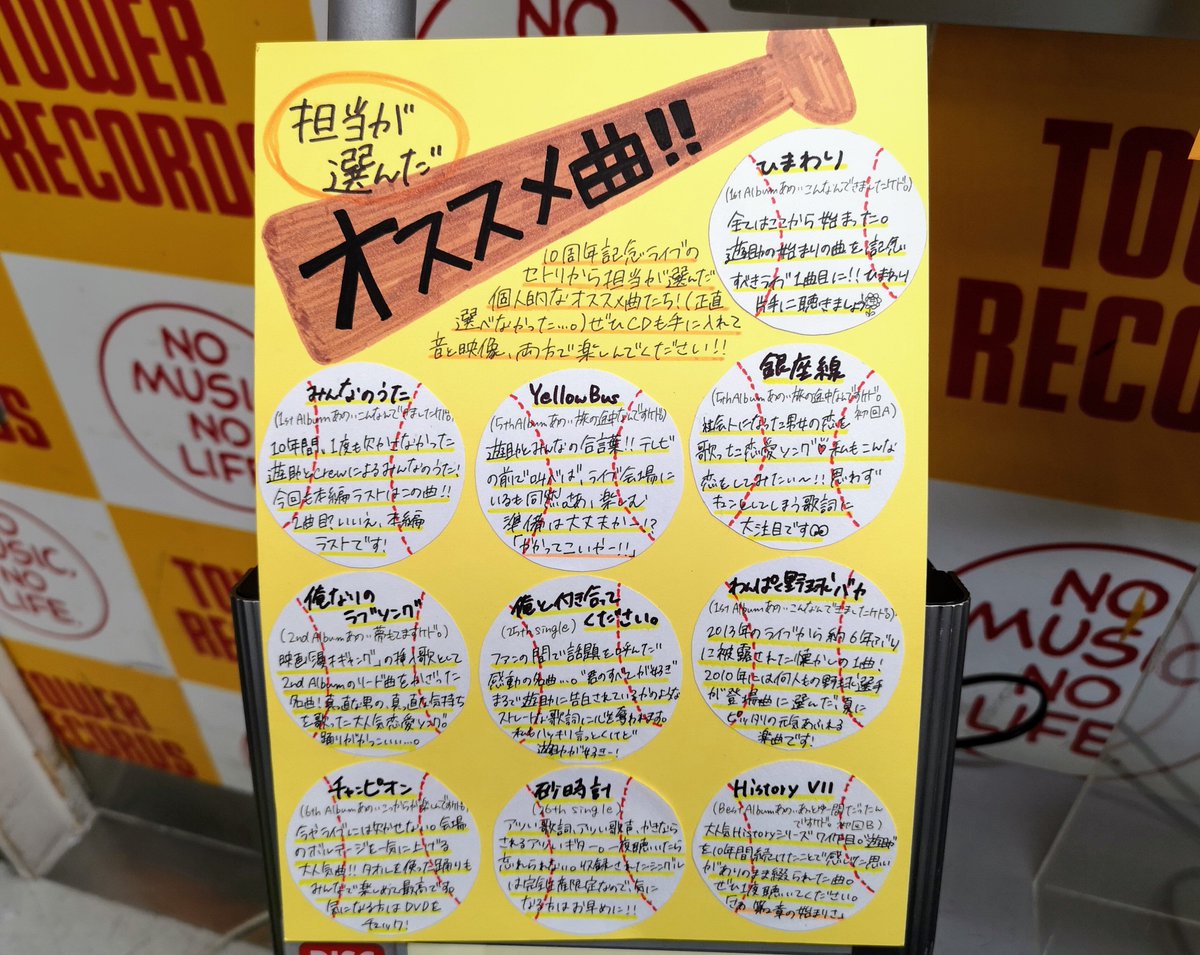 TOWER
RECORDS
NO MUSIC, NO LIFE.
担当が
選んだ
オススメ曲!!
10周年記念ライブの
セトリから担当が選んだ
個人的なオススメ曲たち!(正直
選べなかった…。)ぜひCDも手に入れて
音と映像、両方で楽しんでください!!
ひまわり
(1st Albumあの・・こんなんできましたケド。)
全てはここから始まった。
遊助の始まりの曲を記念
すべきライブ1曲目に!!ひまわり
片手に聴きましょう
みんなのうた
(1st Albumあの・・こんなんできましたケド。)
10年間、1度も欠かさなかった
遊助とCrewによるみんなのうた!
今回も本編ラストはこの曲!!
1曲目?いいえ、本編
ラストです!
Yellow Bus
(5th Albumあの・・旅の途中なんですケド。)
遊助とみんなの合言葉!!テレビ
の前で叫べば、ライブ会場に
いるも同然。さあ、楽しむ
準備は大丈夫かー!?
「かかってこいやー!!」
銀座線
(5th Albumあの・・旅の途中なんですケド。
初回A)
社会人になった男女の恋を
歌った恋愛ソング♥私もこんな
恋をしてみたい〜!!思わず
キュンとしてしまう歌詞に
大注目です
俺なりの
ラブソング
(2nd Albumあの・・夢もてますケド。)
映画「漫才ギャング」の挿入歌として
2nd Albumのリード曲をかざった
名曲!真っ直な男の、真っ直な気持ち
を歌った大人気恋愛ソング。
踊りがかっこいい…。
俺と付き合って
ください。
(25th single)
ファンの間で話題を呼んだ
感動の名曲…。"君のすべてが好き"
まるで遊助に告白されているかのような
ストレートな歌詞に心を奪われます。
私もハッキリ言っとくけど
遊助が好きー!
わんぱく野球バカ
(1st Albumあの・・こんなんできましたケド。)
2013年のライブから約6年ぶり
に披露された懐かしの1曲!
2010年には何人もの野球選手
が登場曲に選んだ、夏に
ピッタリの元気あふれる
楽曲です!
チャンピオン
(6th Albumあの・・こっからが楽しいんですケド。)
今やライブには欠かせない。会場
のボルテージを一気に上げる
大人気曲!!タオルを使った踊りも
みんなで楽しめて最高です。
気になる方はDVDを
チェック!
砂時計
(26th single)
アツい歌詞、アツい歌声、かきなら
されるアツいギター。一度聴いたら
忘れられない。収録されたシングル
は完全生産限定なので気に
なる方はお早めに!!
History VII
(Best Albumあの・・あっとゆー間だったん
ですケド。初回B)
大人気Historyシリーズ7作目。"遊助"
を10年間続けたことで感じた思い
がありのまま綴られた曲。
ぜひ1度聴いてください。
「さあ 第2章の始まりさ」
DISC